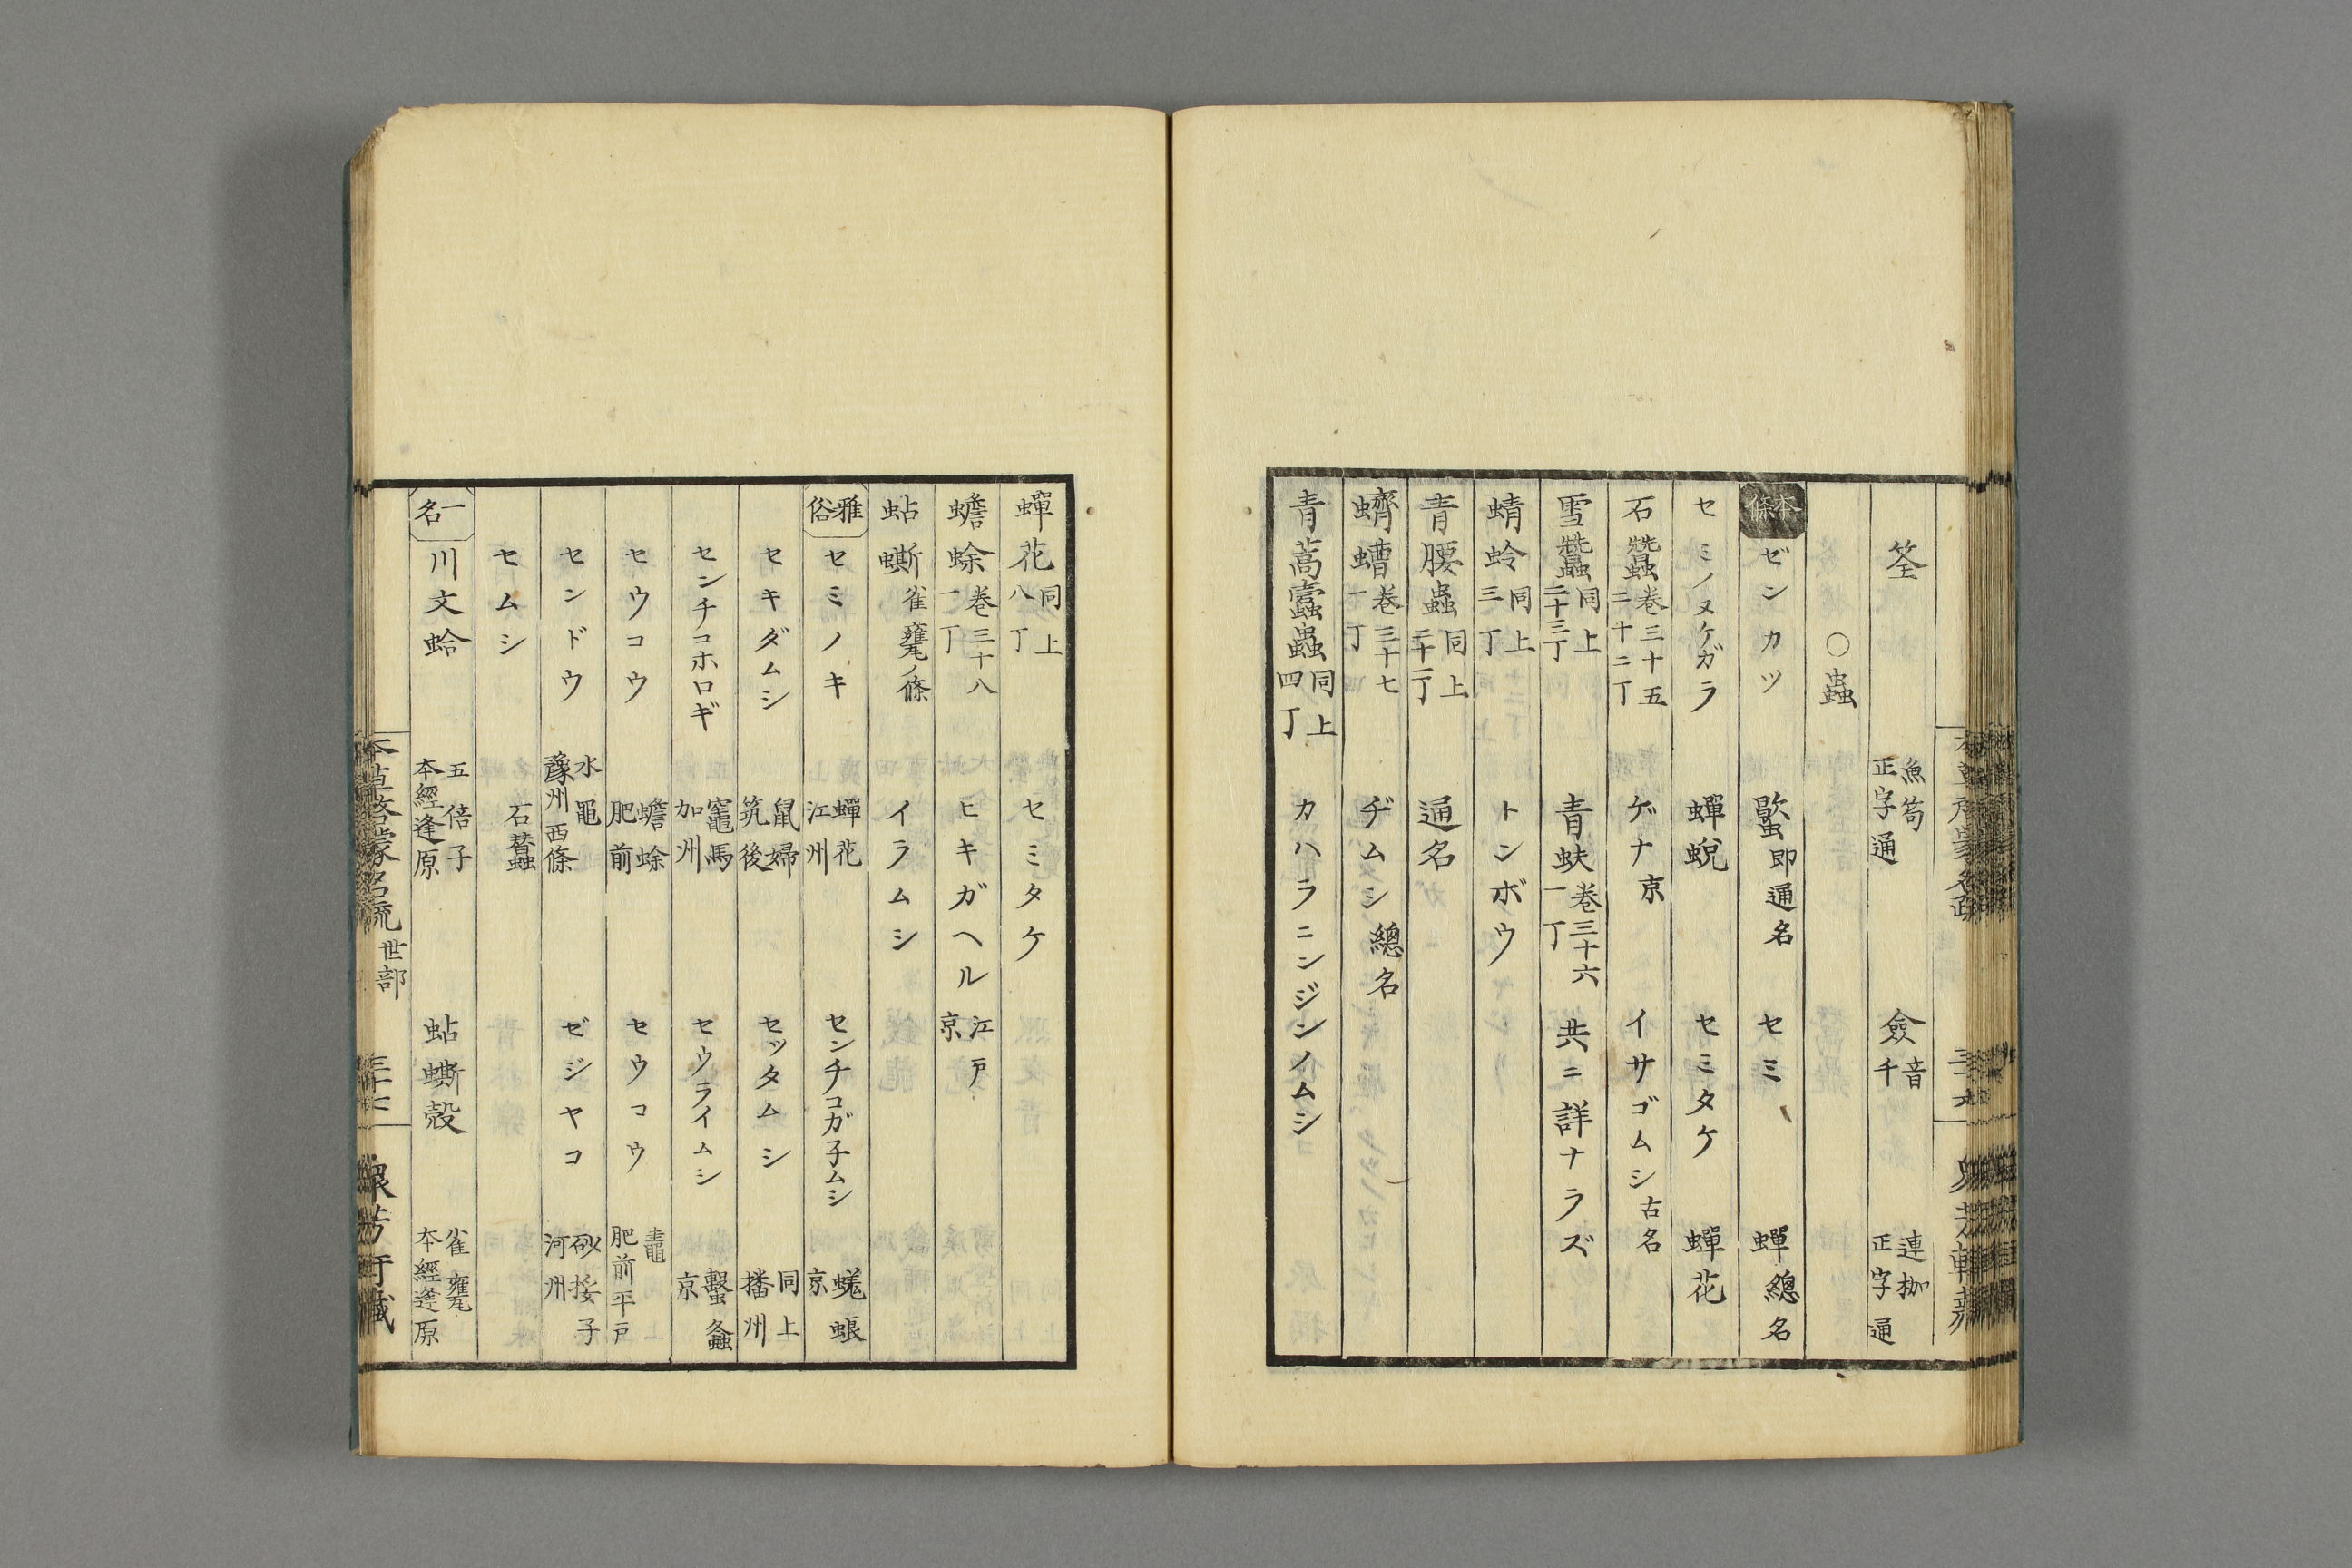 筌 魚笱 正字通 僉 音千 連枷 正字通
○蟲
本條 ゼンカツ 蠍 即通名 セミ 蟬 總名
セミノヌケガラ 蟬蛻 セミタケ 蟬花
石蠶 卷三十五 二十二丁 ゲナ 京 イサゴムシ 古名
雪蠶 同上 二十三丁 青蚨 卷三十六 一丁 共ニ詳ナラズ
蜻蛉 同上 三丁 トンボウ
青腰蟲 同上 二十二丁 通名
蠐螬 卷三十七 一丁 ヂムシ 總名
青蒿蠹蟲 同上 四丁 カハラニンジンノムシ
蟬花 同上 八丁 セミタケ
蟾蜍 卷三十八 一丁 ヒキガヘル 江戸 京
蛅蟖 雀甕ノ條 イラムシ
雅俗 セミノキ 蟬花 江州 センチコガ子ムシ 蜣蜋 京
セキダムシ 鼠婦 筑後 セッタムシ 同上 播州
センチコホロギ 竈馬 加州 セウライムシ 螇螽 京
セウコウ 蟾蜍 肥前 セウコウ 肥前平戸
センドウ 水黽 豫州西條 ゼジヤコ 砂挼子 河州
セムシ 石蠶
一名 川文蛤 五倍子 本經逢原 蛅蟖殻 雀甕 本經逢原
本草啓蒙名疏 世部